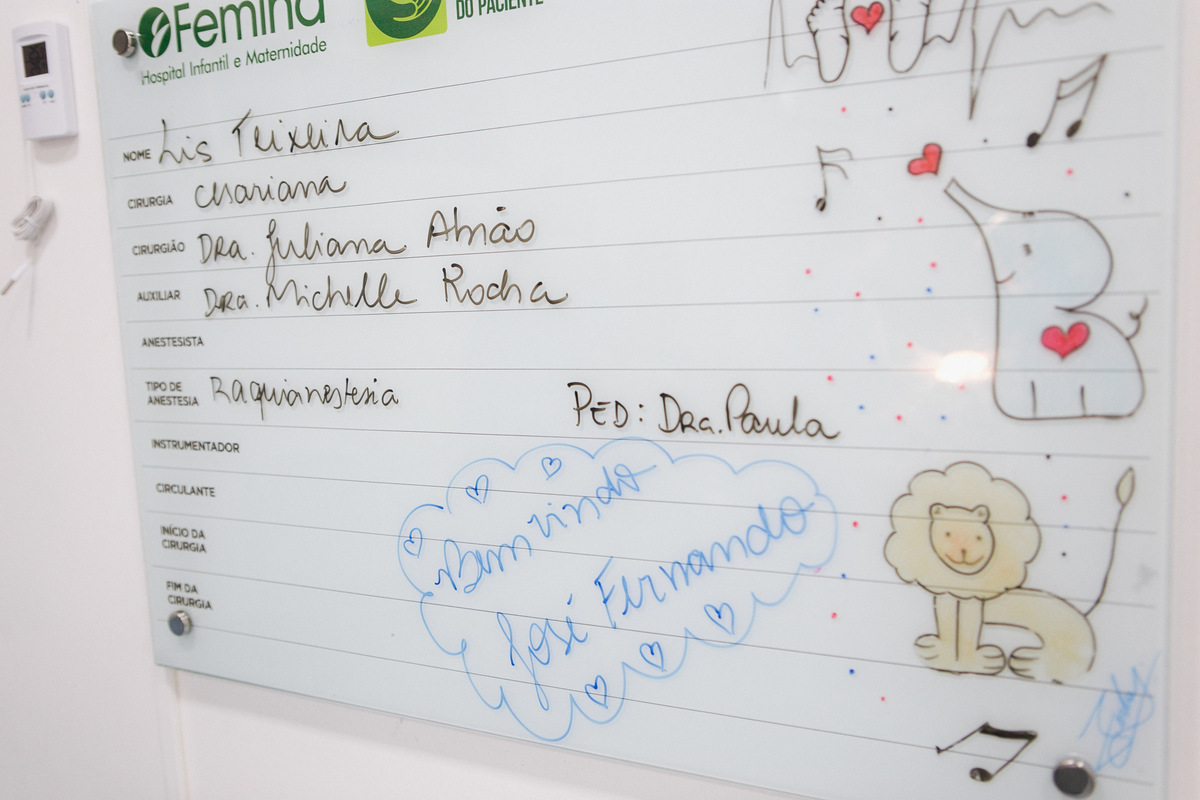 Femina
DO PACIENTE
Hospital Infantil e Maternidade
NOME Lis Teixeira
CIRURGIA Cesariana
CIRURGIÃO DRA. Juliana Abrão
AUXILIAR Dra. Michelle Rocha
ANESTESISTA
TIPO DE ANESTESIA Raquianestesia PED: Dra. Paula
INSTRUMENTADOR
CIRCULANTE
INÍCIO DA CIRURGIA
FIM DA CIRURGIA
Bem vindo
José Fernando